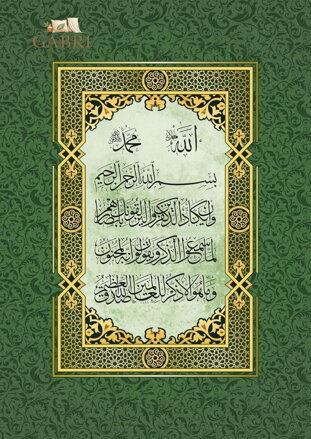 GABRI
الله محمد
بسم الله الرحمن الرحيم
وان يكاد الذين كفروا ليزلقونك بابصارهم
لما سمعوا الذكر ويقولون انه لمجنون
وما هو الا ذكر للعالمين صدق الله العظيم